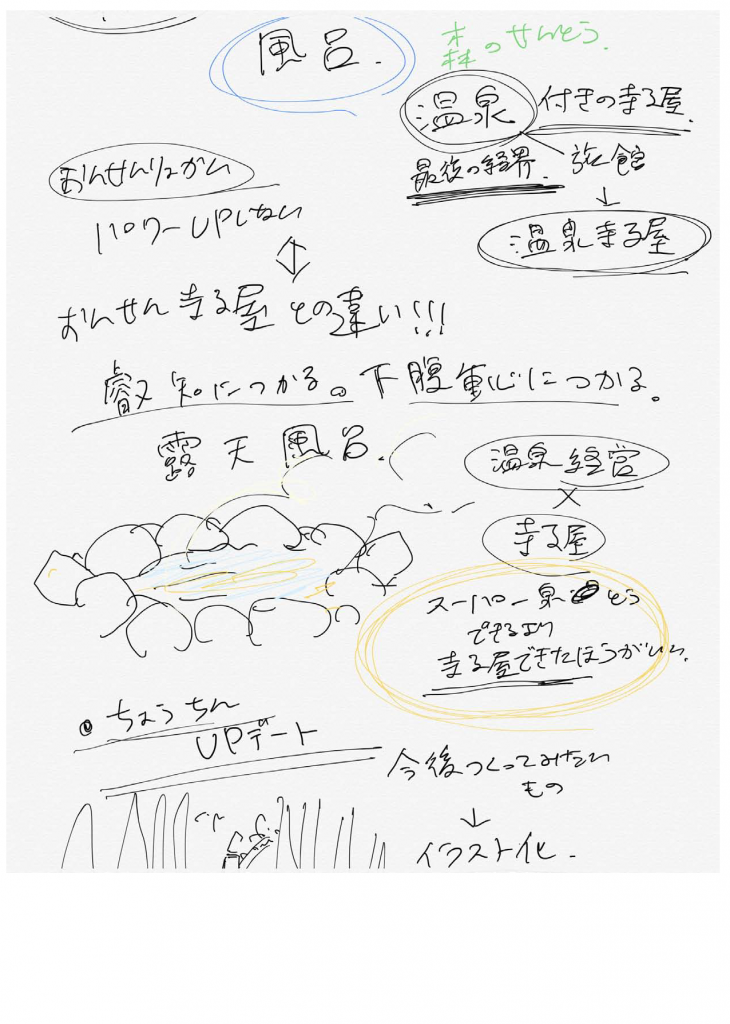 風呂.
森のせんとう.
温泉 付きの寺る屋.
最後の経界. 旅館
↓
温泉寺る屋
おんせんりょかん
パワーUPしない
おんせん寺る屋との違い!!!
叡知につかる。下腹重心につかる。
露天風呂.
温泉経営
×
寺る屋
スーパー泉とう
できるより
寺る屋できたほうがいい.
ちょうちん
UPデート
今後つくってみたい
もの
↓
イラスト化.